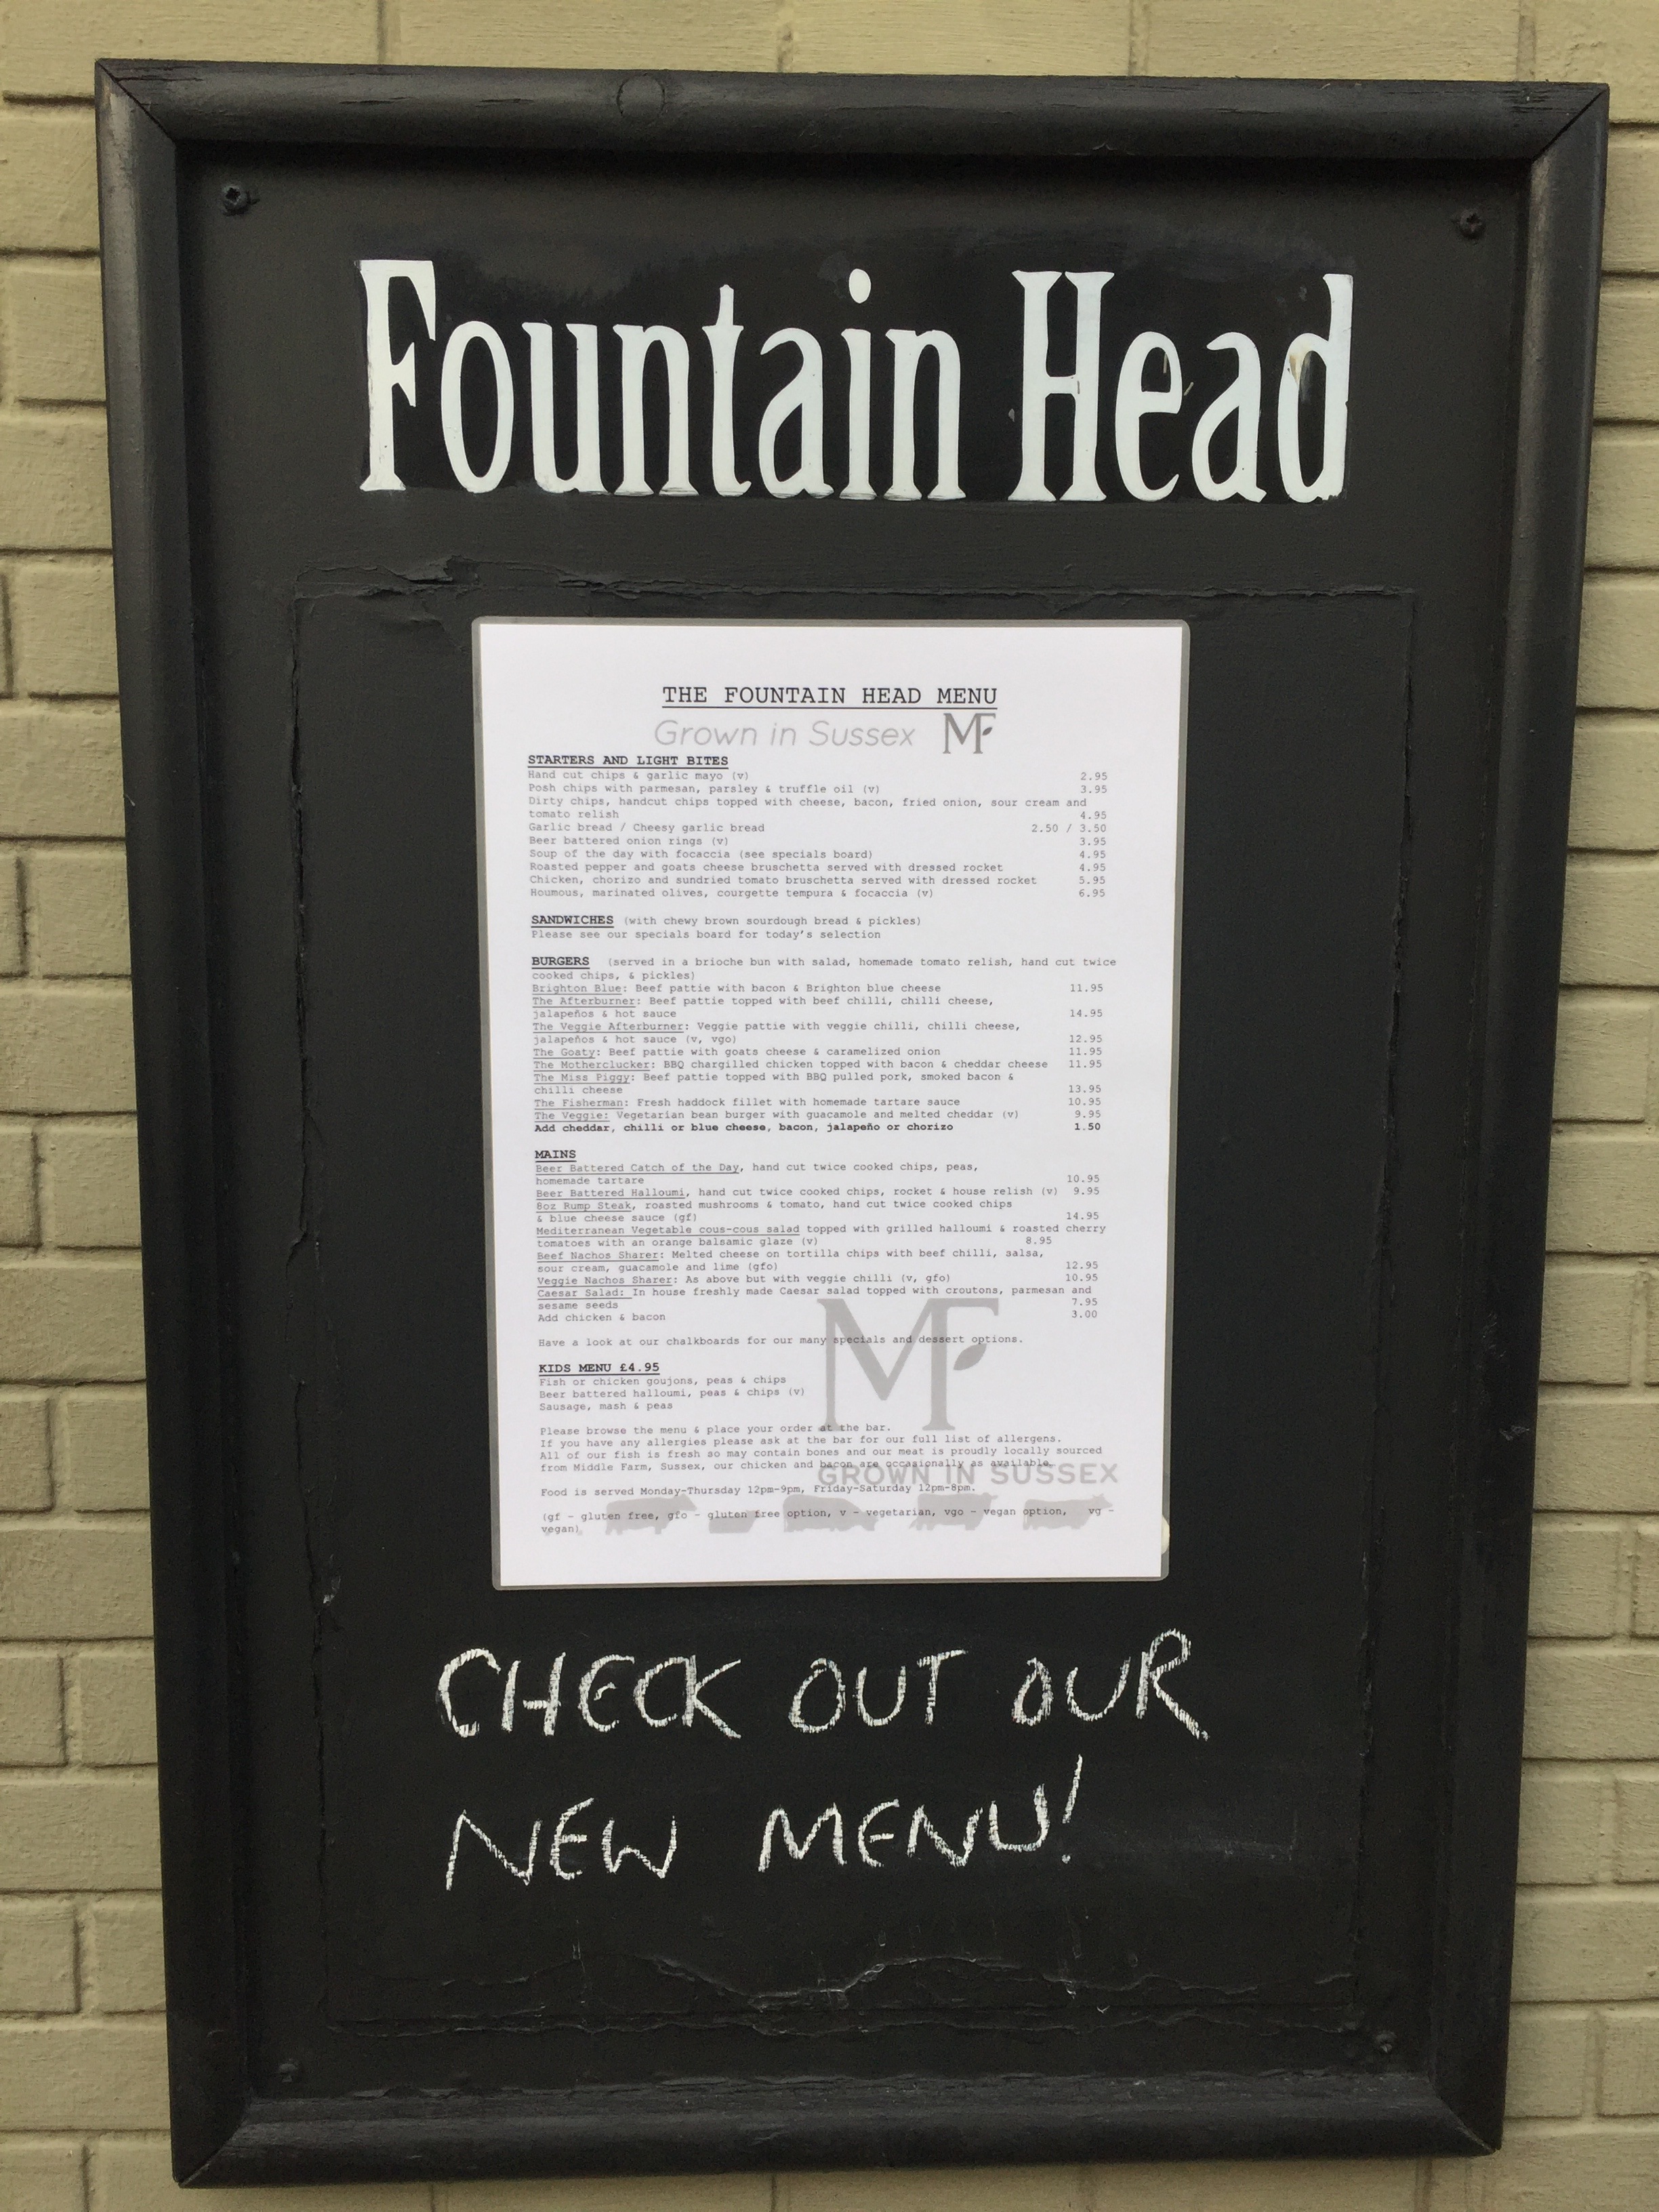 Fountain Head
THE FOUNTAIN HEAD MENU
Grown in Sussex MF
STARTERS AND LIGHT BITES
Hand cut chips & garlic mayo (v) 2.95
Posh chips with parmesan, parsley & truffle oil (v) 3.95
Dirty chips, handcut chips topped with cheese, bacon, fried onion, sour cream and
tomato relish 4.95
Garlic bread / Cheesy garlic bread 2.50 / 3.50
Beer battered onion rings (v) 3.95
Soup of the day with focaccia (see specials board) 4.95
Roasted pepper and goats cheese bruschetta served with dressed rocket 4.95
Chicken, chorizo and sundried tomato bruschetta served with dressed rocket 5.95
Houmous, marinated olives, courgette tempura & focaccia (v) 6.95
SANDWICHES (with chewy brown sourdough bread & pickles)
Please see our specials board for today's selection
BURGERS (served in a brioche bun with salad, homemade tomato relish, hand cut twice
cooked chips, & pickles)
Brighton Blue: Beef pattie with bacon & Brighton blue cheese 11.95
The Afterburner: Beef pattie topped with beef chilli, chilli cheese,
jalapeños & hot sauce 14.95
The Veggie Afterburner: Veggie pattie with veggie chilli, chilli cheese,
jalapeños & hot sauce (v, vgo) 12.95
The Goaty: Beef pattie with goats cheese & caramelized onion 11.95
The Motherclucker: BBQ chargilled chicken topped with bacon & cheddar cheese 11.95
The Miss Piggy: Beef pattie topped with BBQ pulled pork, smoked bacon &
chilli cheese 13.95
The Fisherman: Fresh haddock fillet with homemade tartare sauce 10.95
The Veggie: Vegetarian bean burger with guacamole and melted cheddar (v) 9.95
Add cheddar, chilli or blue cheese, bacon, jalapeño or chorizo 1.50
MAINS
Beer Battered Catch of the Day, hand cut twice cooked chips, peas,
homemade tartare 10.95
Beer Battered Halloumi, hand cut twice cooked chips, rocket & house relish (v) 9.95
8oz Rump Steak, roasted mushrooms & tomato, hand cut twice cooked chips
& blue cheese sauce (gf) 14.95
Mediterranean Vegetable cous-cous salad topped with grilled halloumi & roasted cherry
tomatoes with an orange balsamic glaze (v) 8.95
Beef Nachos Sharer: Melted cheese on tortilla chips with beef chilli, salsa,
sour cream, guacamole and lime (gfo) 12.95
Veggie Nachos Sharer: As above but with veggie chilli (v, gfo) 10.95
Caesar Salad: In house freshly made Caesar salad topped with croutons, parmesan and
sesame seeds 7.95
Add chicken & bacon 3.00
Have a look at our chalkboards for our many specials and dessert options.
KIDS MENU £4.95
Fish or chicken goujons, peas & chips
Beer battered halloumi, peas & chips (v)
Sausage, mash & peas
MF
Please browse the menu & place your order at the bar.
If you have any allergies please ask at the bar for our full list of allergens.
All of our fish is fresh so may contain bones and our meat is proudly locally sourced
from Middle Farm, Sussex, our chicken and bacon are occasionally as available.
GROWN IN SUSSEX
Food is served Monday-Thursday 12pm-9pm, Friday-Saturday 12pm-8pm.
(gf - gluten free, gfo - gluten free option, v - vegetarian, vgo - vegan option, vg -
vegan)
CHECK OUT OUR
NEW MENU!